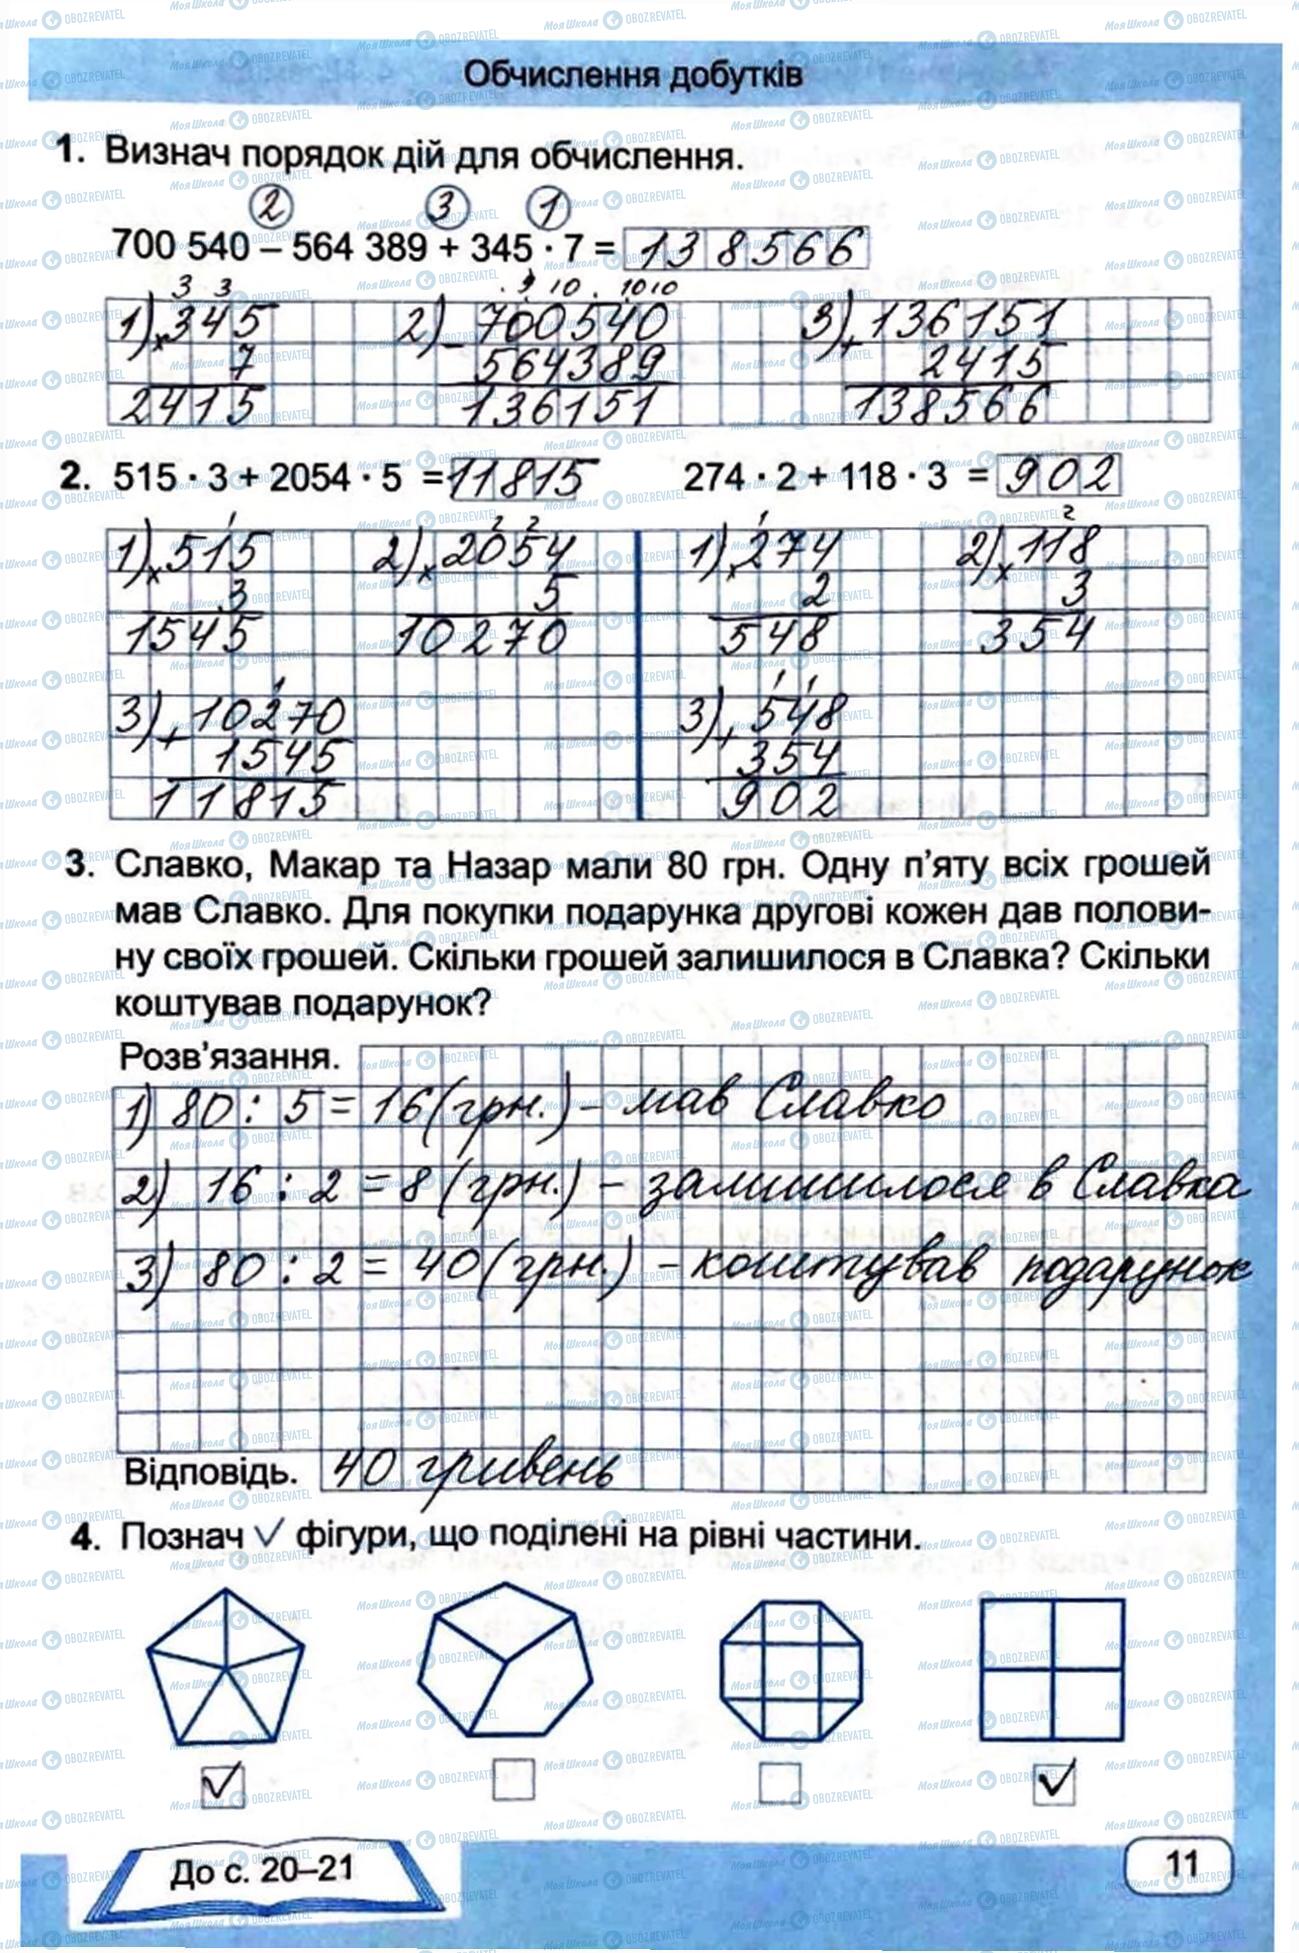 Обчислення добутків
1. Визнач порядок дій для обчислення.
2 3 1
700 540 – 564 389 + 345 · 7 = 138566
3 3 . 9 10 . 10 10
1) ×345 2) –700540 3) +136151
7 564389 2415
2415 136151 138566
2. 515 · 3 + 2054 · 5 = 11815 274 · 2 + 118 · 3 = 902
1 2 2 1 2
1) ×515 2) ×2054 1) ×274 2) ×118
3 5 2 3
1545 10270 548 354
1 1 1
3) +10270 3) +548
1545 354
11815 902
3. Славко, Макар та Назар мали 80 грн. Одну п’яту всіх грошей
мав Славко. Для покупки подарунка другові кожен дав полови-
ну своїх грошей. Скільки грошей залишилося в Славка? Скільки
коштував подарунок?
Розв’язання.
1) 80 : 5 = 16 (грн.) – мав Славко
2) 16 : 2 = 8 (грн.) – залишилося в Славка
3) 80 : 2 = 40 (грн.) – коштував подарунок
Відповідь. 40 гривень
4. Познач ✓ фігури, що поділені на рівні частини.
✓ ✓
До с. 20–21
11
МояШкола OBOZREVATEL